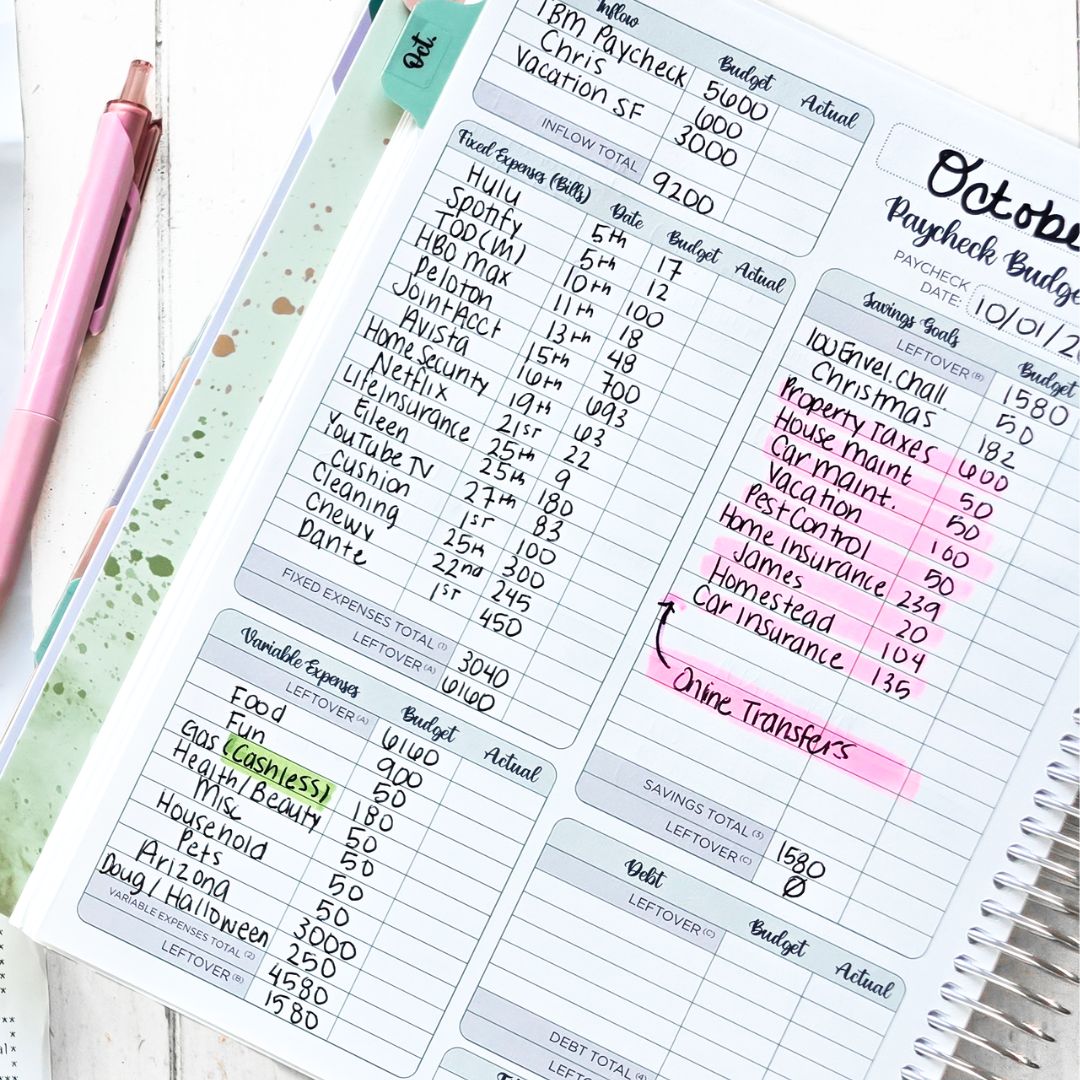 Oct.
Inflow Budget Actual
IBM Paycheck 5600
Chris 600
Vacation SF 3000
INFLOW TOTAL 9200
Fixed Expenses (Bills) Date Budget Actual
Hulu 5th 17
Spotify 5th 12
TOD(M) 10th 100
HBO Max 11th 18
Peloton 13th 48
Joint Acct 15th 700
Avista 16th 693
Home Security 19th 63
Netflix 21st 22
Life Insurance 25th 9
Eileen 25th 180
YouTube TV 27th 83
Cushion 1st 100
Cleaning 25th 300
Chewy 22nd 245
Dante 1st 450
FIXED EXPENSES TOTAL (1) 3040
LEFTOVER (A) 6160
Variable Expenses Budget Actual
LEFTOVER (A) 6160
Food 900
Fun 50
Gas (Cashless) 180
Health/Beauty 50
Misc 50
Household 50
Pets 50
Arizona 3000
Doug/Halloween 250
VARIABLE EXPENSES TOTAL (2) 4580
LEFTOVER (B) 1580
Octobe
Paycheck Budge
PAYCHECK
DATE: 10/01/2
Savings Goals Budget
LEFTOVER (B) 1580
100 Envel. Chall. 50
Christmas 182
Property Taxes 600
House Maint 50
Car Maint. 50
Vacation 100
Pest Control 50
Home Insurance 239
James 20
Homestead 104
Car Insurance 135
Online Transfers
SAVINGS TOTAL (3) 1580
LEFTOVER (C) Ø
Debt Budget Actual
LEFTOVER (C)
DEBT TOTAL (4)